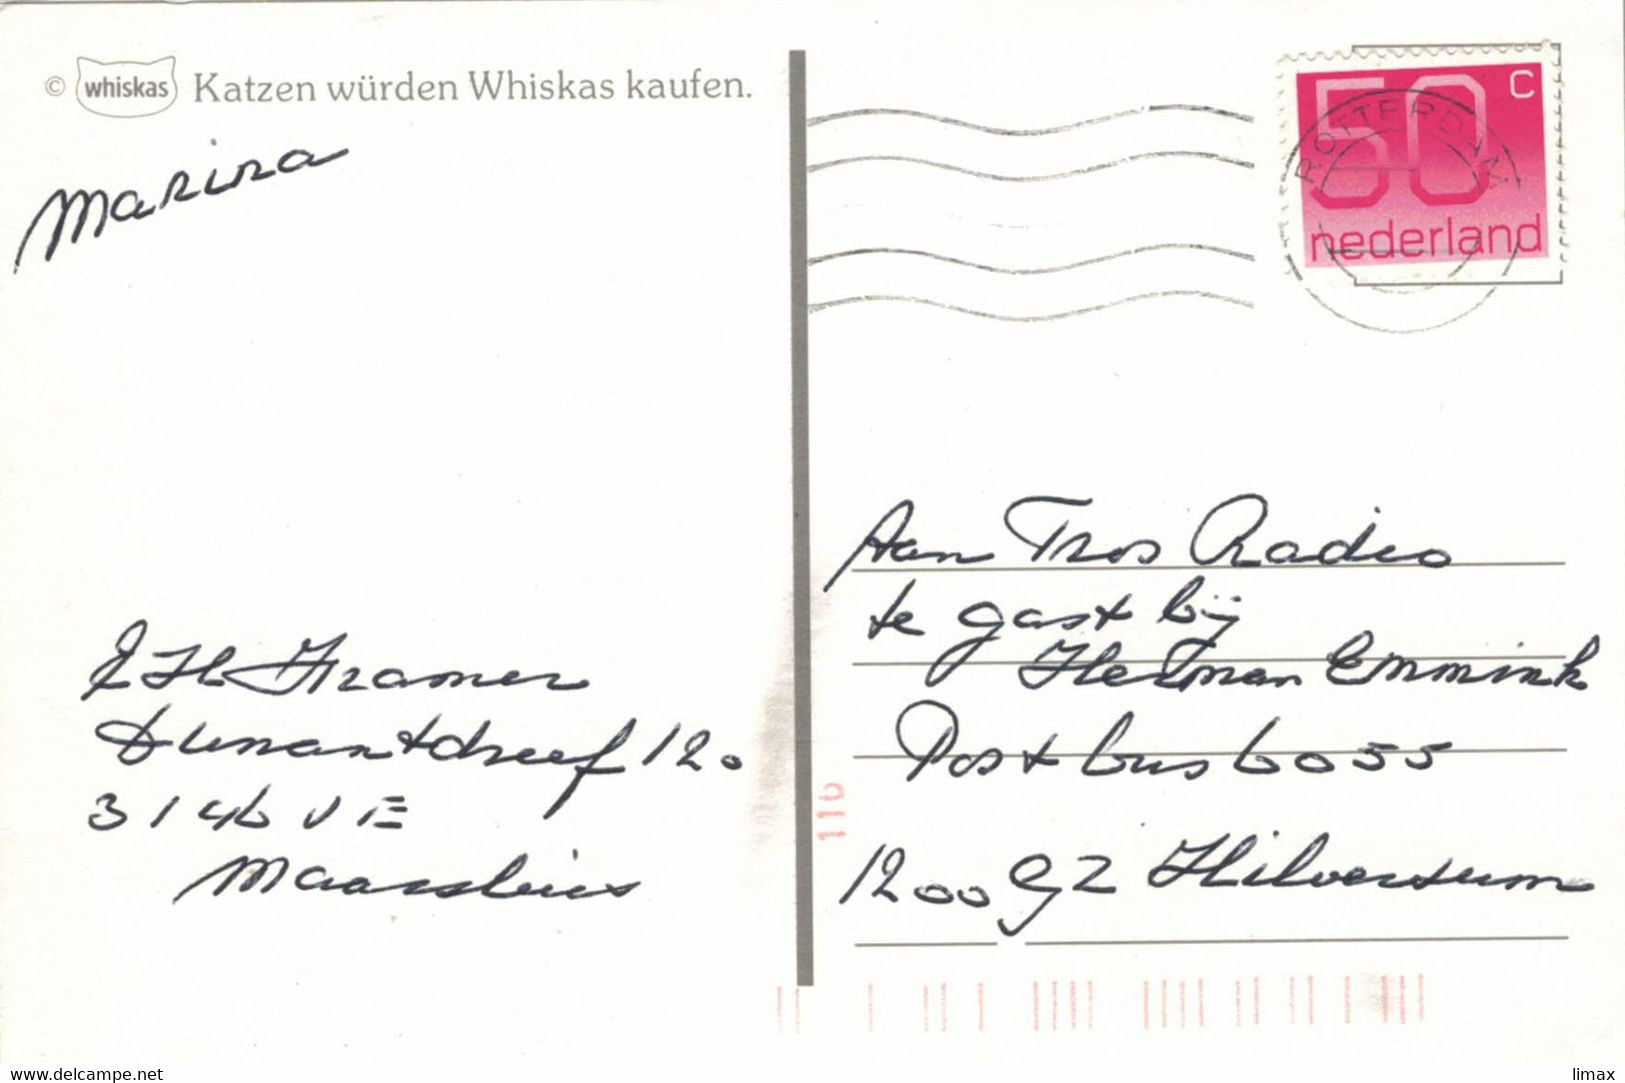 © whiskas Katzen würden Whiskas kaufen.
Marina
Kramer
Dunantdreef 120
3146 VE
Maassluis
50 C
nederland
ROTTERDAM
Aan Tros Radio
te gast bij
Herman Emmink
Postbus 6055
1200 GZ Hilversum
116
www.delcampe.net
limax